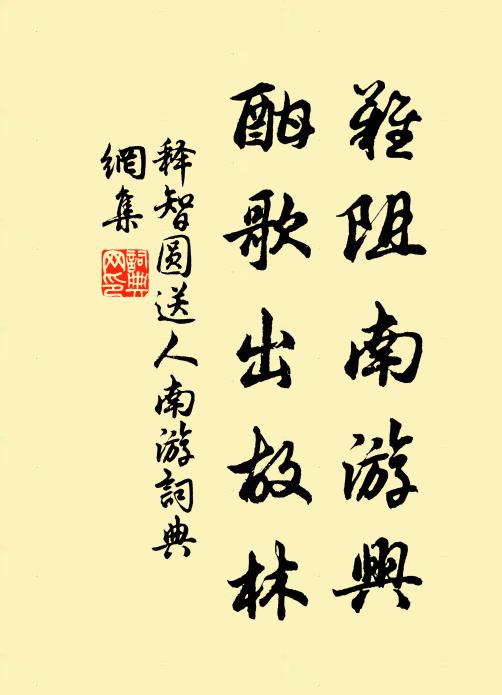 難阻南游興
酣歌出故林
释智圆送人南游詞典
網集
詞典網印